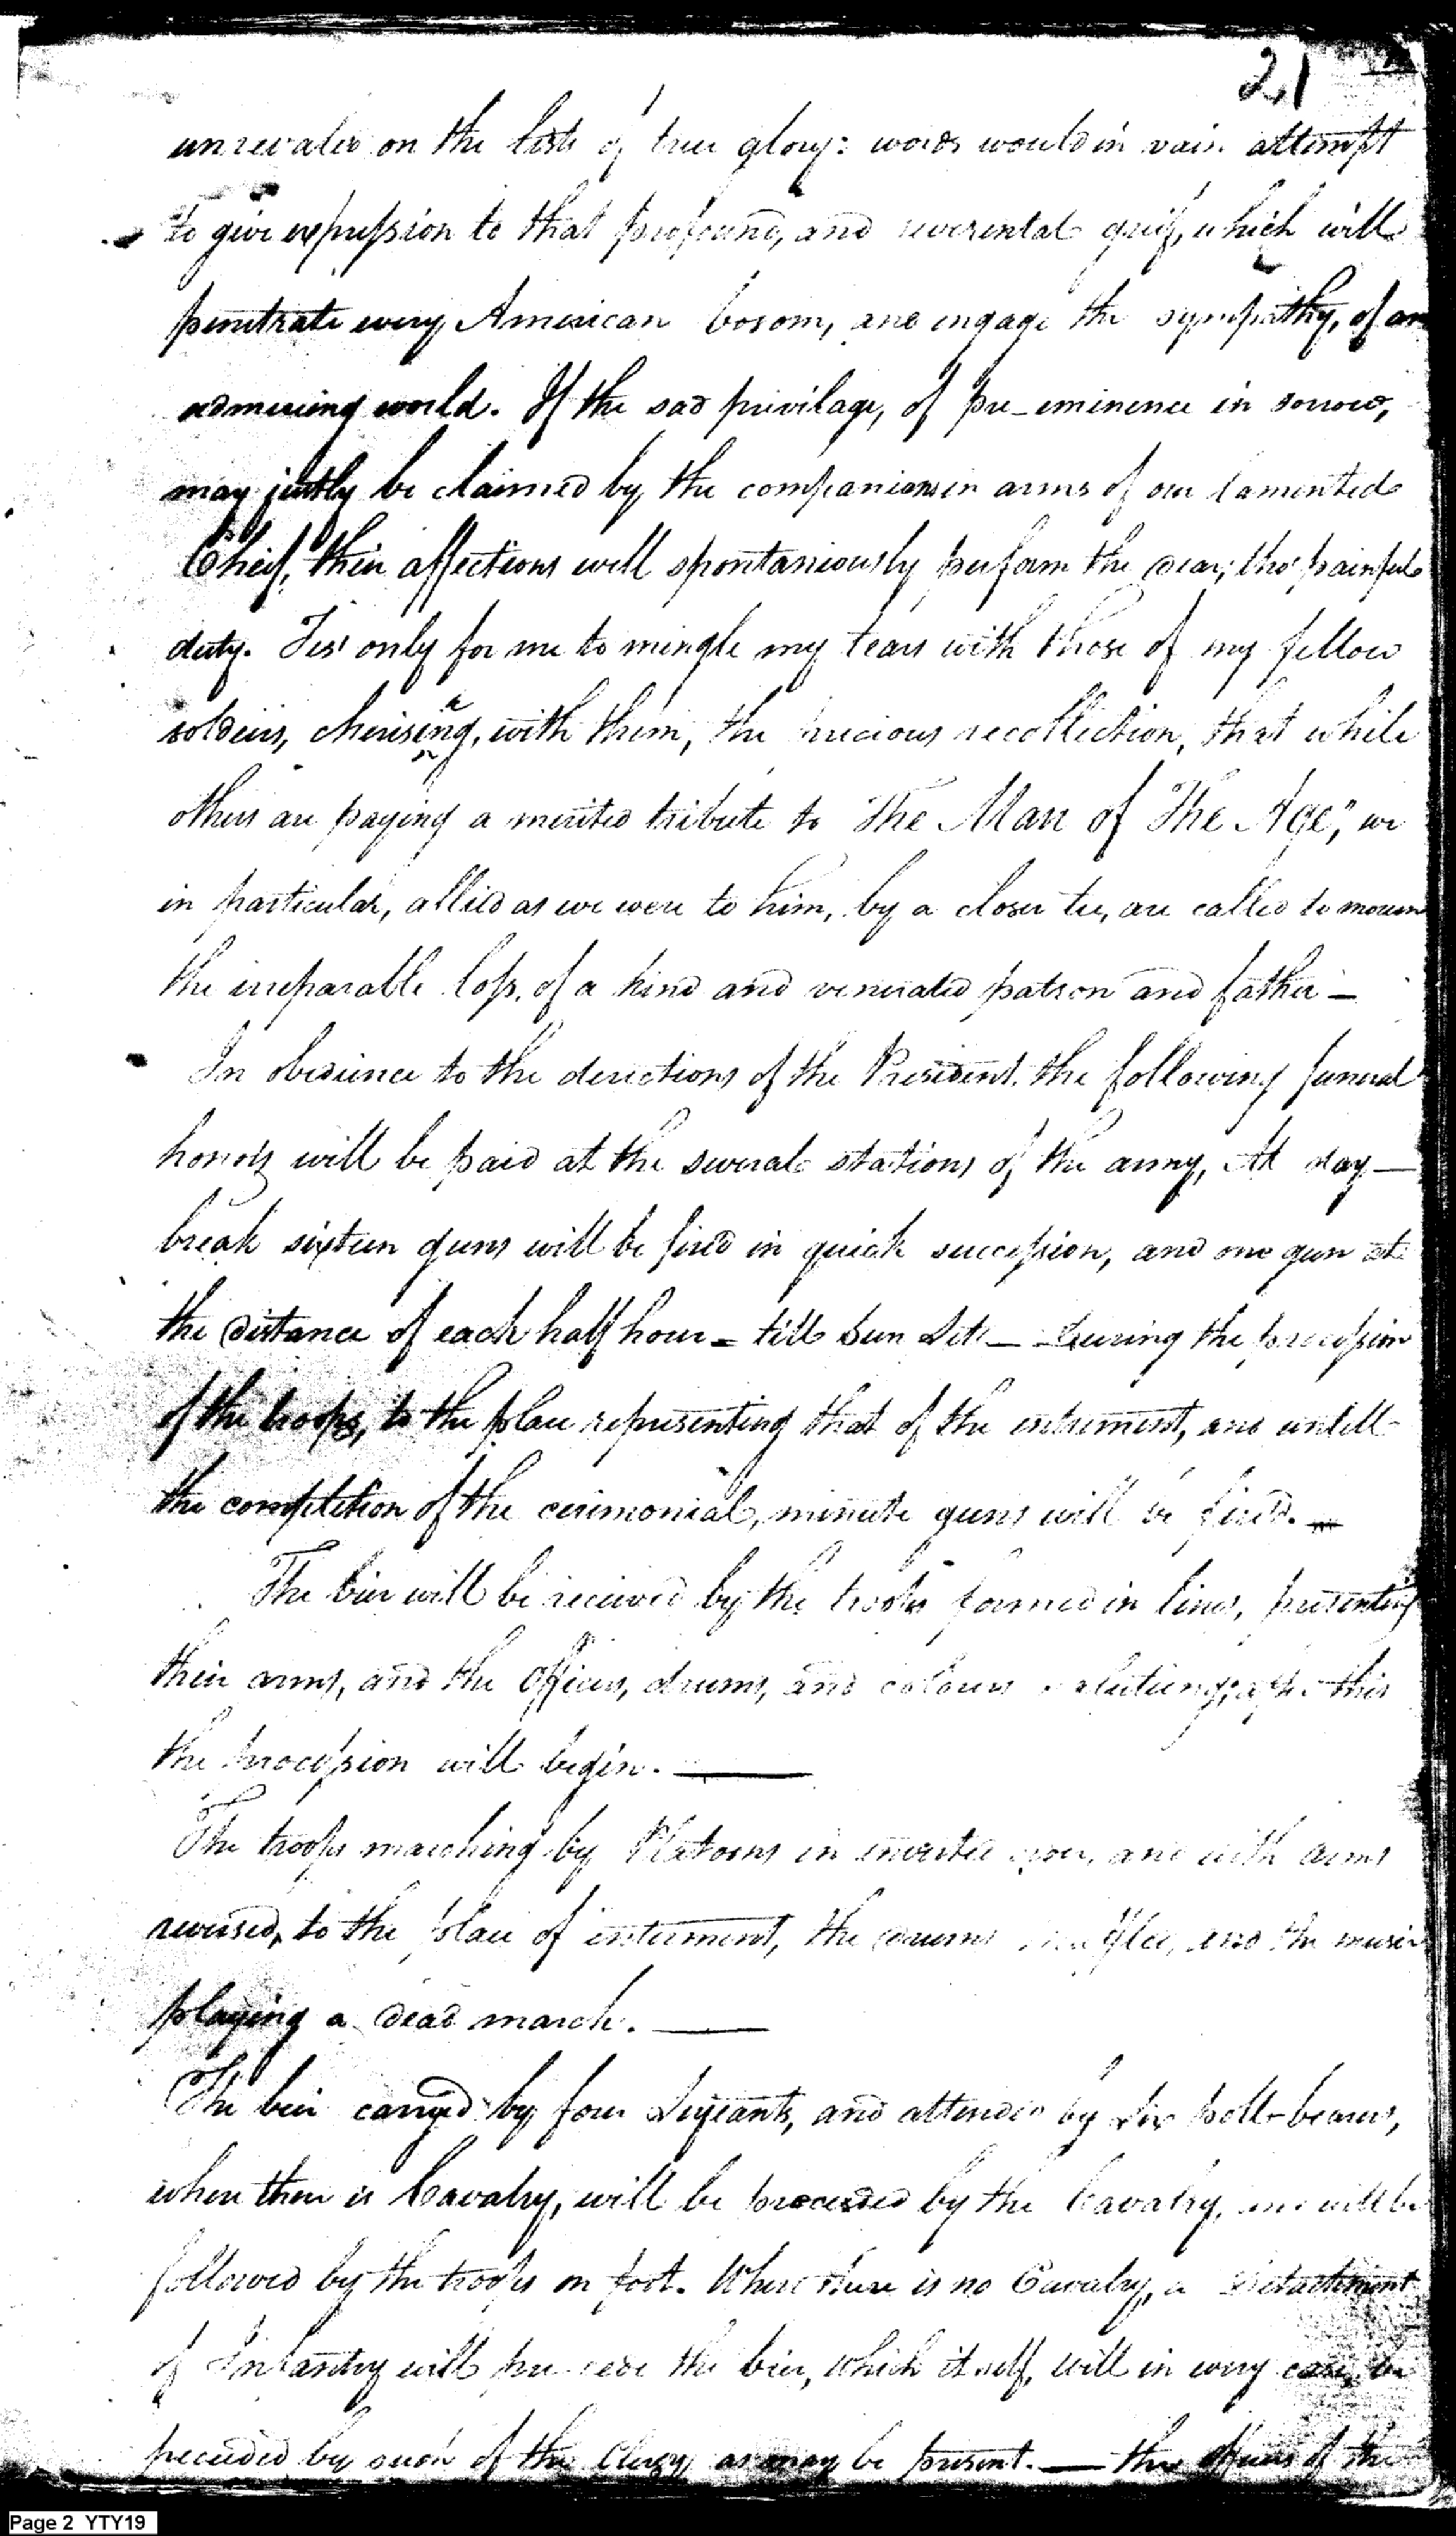 21
unrevaled on the lists of true glory: words would in vain attempt
to give expression to that profound, and reverental grief, which will
penetrate every American bosom, and engage the sympathy, of an
admireing world. If the sad privilage, of pre-eminence in sorrow,
may justly be claimed by the companions in arms of our lamented
Cheif, their affections will spontaniously perform the dear, tho' painful
duty. Tis' only for me to mingle my tears with those of my fellow
soldeirs, cherising, with them, the precious recollection, that while
others are paying a merited tribute to "The Man of The Age", we
in particular, allied as we were to him, by a closer tie, are called to mourn
the irreparable loss, of a kind and venerated patron and father —
In obedience to the derections of the President, the following funeral
honors will be paid at the several stations of the army, At day—
break sixteen guns will be fired in quick succession, and one gun at
the distance of each half hour — till Sun Set — During the procession
of the troops, to the place representing that of the enterment, and untill
the completion of the cerimonial, minute guns will be fired. —
The bier will be received by the troops formed in lines, presenting
their arms, and the Officers, drums, and colours saluting; after this
the procession will begin. —
The troops marching by Platoons in inverted order, and with arms
reversed, to the place of interment, the drums muffled, and the music
playing a dead march. —
The beir carryed by four Sergeants, and attended by Six poll-bearers,
when there is Cavalry, will be proceeded by the Cavalry, and will be
followed by the troops on foot. Where there is no Cavalry, a Detachment
of Infantry will precede the bier, which itself, will in every case, be
preceeded by such of the Clergy as may be present. — the officers of the
Page 2 YTY19